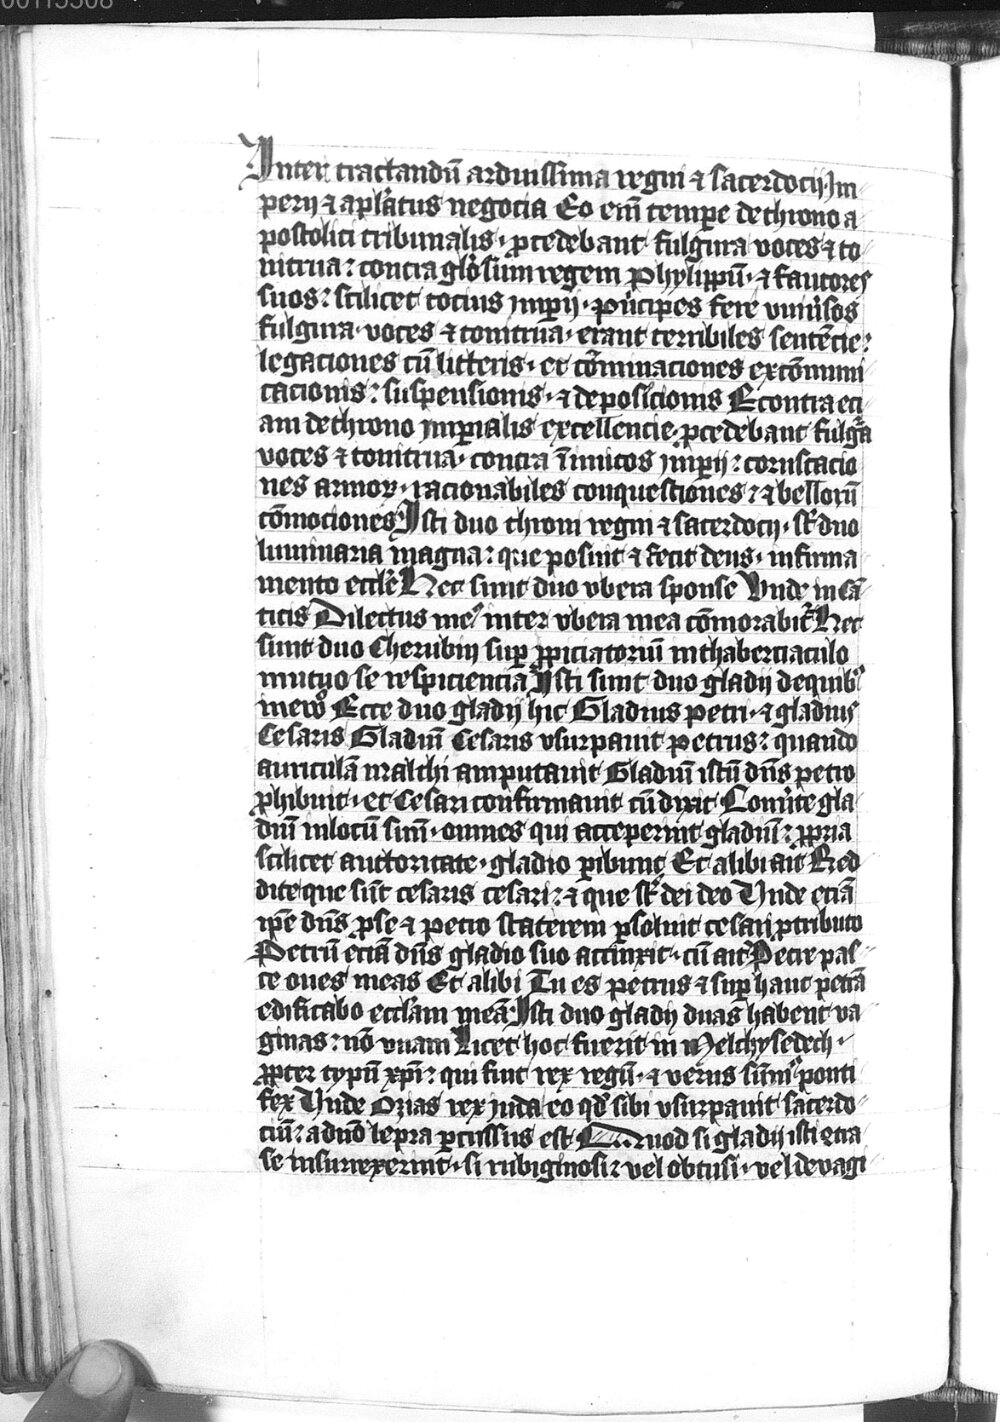 00115308
Inter tractandū arduissima regni ⁊ sacerdocij Im
perij ⁊ apl̄atus negocia Eo em̄ tempe de throno a
postolici tribunalis · ꝓcedebant fulgura voces ⁊ to
nitrua : contra glo̅sum regem Phylippū · ⁊ fautores
suos : scilicet tocius imꝑij · pͥncipes fere vniuͥsos
fulgura · voces ⁊ tonitrua · erant terribiles sentēcie :
legaciones cū litteris · et cōminaciones excōmuni
cacionis : suspensionis · ⁊ deposicionis Econtra eci
am de throno imꝑialis excellencie · ꝓcedebant fulgᵃa
voces ⁊ tonitrua · contra īimicos imꝑij : coruscacio
nes armoꝝ · racionabiles conquestiones : ⁊ bellorū
cōmociones Isti duo throni regni ⁊ sacerdocij · st̄ duo
luminaria magna : que posuit ⁊ fecit deus · in firma
mento eccle̅ Hec sunt duo vbera sponse Vnde in cā
ticis Dilectus meꝰ inter vbera mea cōmorabit̄ Hec
sunt duo Cherubin suꝑ ꝓpiciatoriū in thabernaculo
mutuo se respiciencia Isti sunt duo gladij de quibꝰ
in ewᵒ Ecce duo gladij hic Gladius petri · ⁊ gladius
Cesaris Gladiū Cesaris vsurpauit petrus : quando
auriculā malchi amputauit Gladiū istū dn̄s petro
ꝓhibuit · et Cesari confirmauit cū dixit Conuͥte gla
diū in locū suū · omnes qui acceperint gladiū : ꝓpria
scilicet auctoritate · gladio ꝑibunt Et alibi ait Red
dite que sūt cesaris cesari : ⁊ que st̄ dei deo Vnde eciā
ip̄e dn̄s ꝓ se ⁊ petro staterem ꝑsoluit cesari ꝓ tributo
Petrū eciā dn̄s gladio suo accinxit · cū ait Petre pas
ce oues meas Et alibi Tu es petrus ⁊ suꝑ hanc petrā
edificabo ecclam meā Isti duo gladij duas habent va
ginas : nō vnam Licet hoc fuerit in Melchysedech ·
ꝓpter typū xp̄i : qui fuit rex regū · ⁊ verus sūmꝰ ponti
fex Vnde Ozias rex iuda eo qd̄ sibi vsurpauit sacerdo
ciū : a dn̄o lepra ꝑcussus est Quod si gladij isti ꝯtra
se insurrexerint · si rubiginosi : vel obtusi · vel de vagi